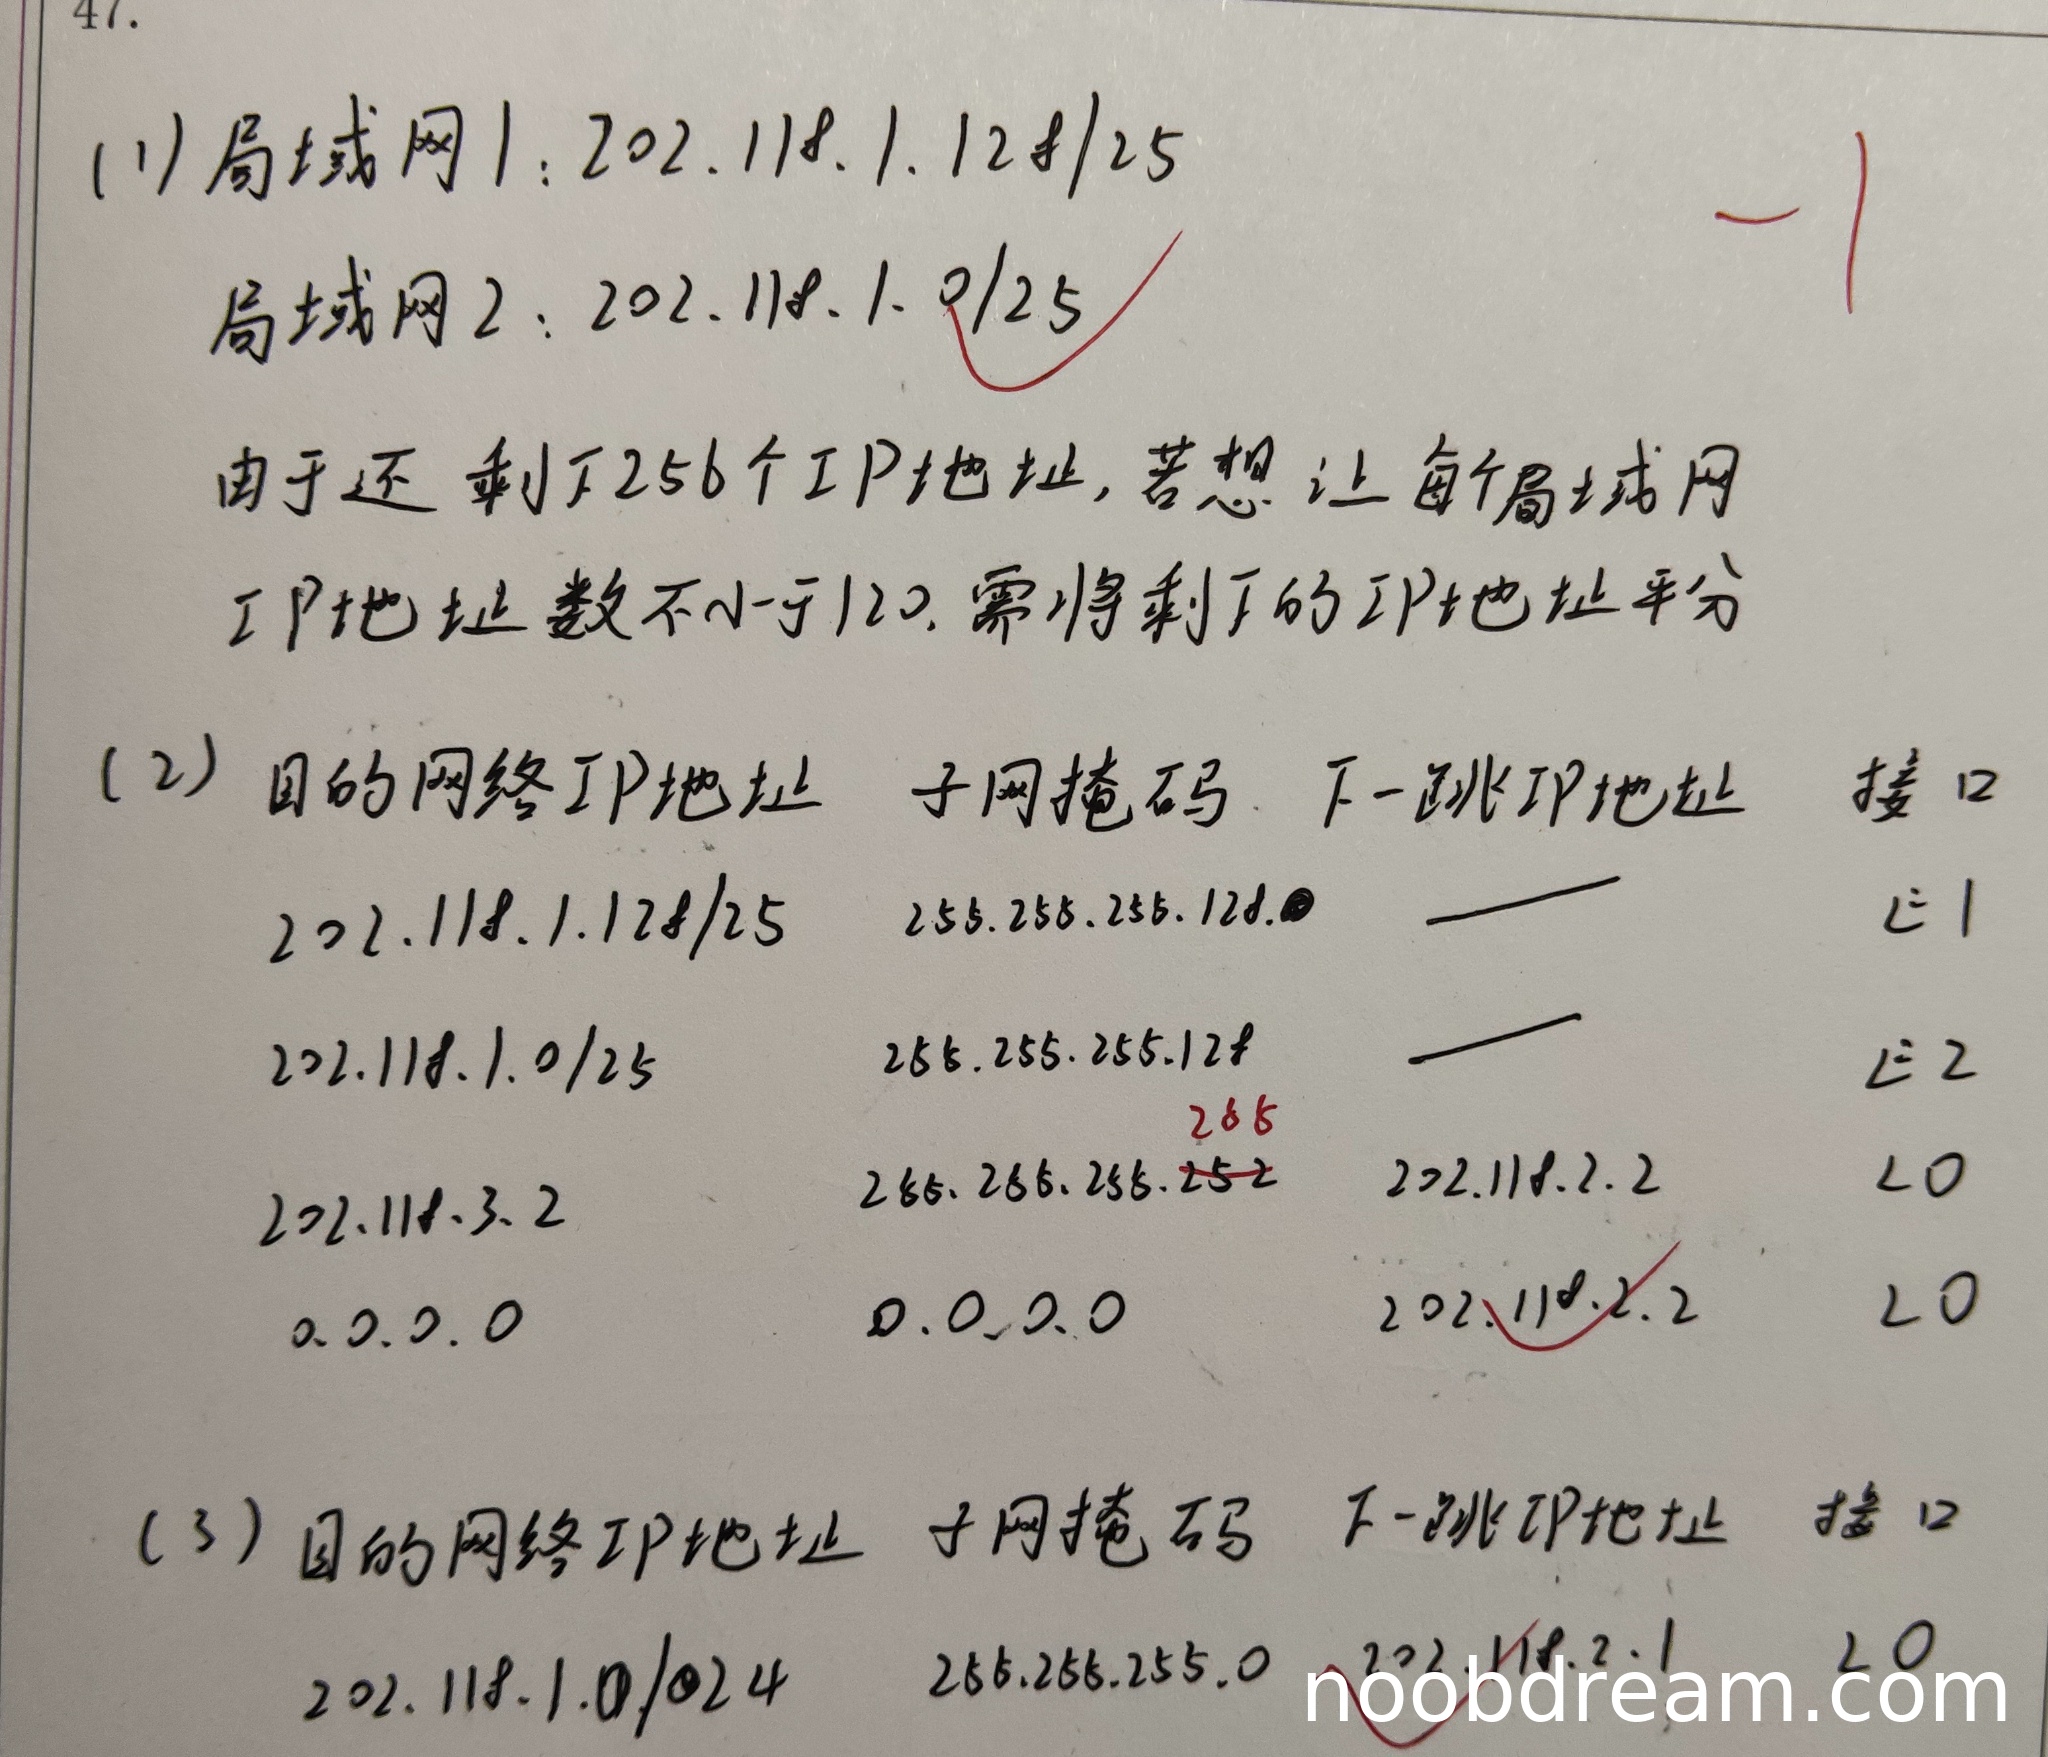 47.
(1) 局域网1: 202.118.1.128/25
-1
局域网2: 202.118.1.0/25
由于还剩下256个IP地址,若想让每个局域网
IP地址数不小于120,需将剩下的IP地址平分
(2) 目的网络IP地址 子网掩码 下一跳IP地址 接口
202.118.1.128/25 255.255.255.128. — E1
202.118.1.0/25 255.255.255.128 — E2
255
202.118.3.2 255.255.255.252 202.118.2.2 L0
0.0.0.0 0.0.0.0 202.118.2.2 L0
(3) 目的网络IP地址 子网掩码 下一跳IP地址 接口
202.118.1.0/24 255.255.255.0 202.118.2.1 L0
noobdream.com